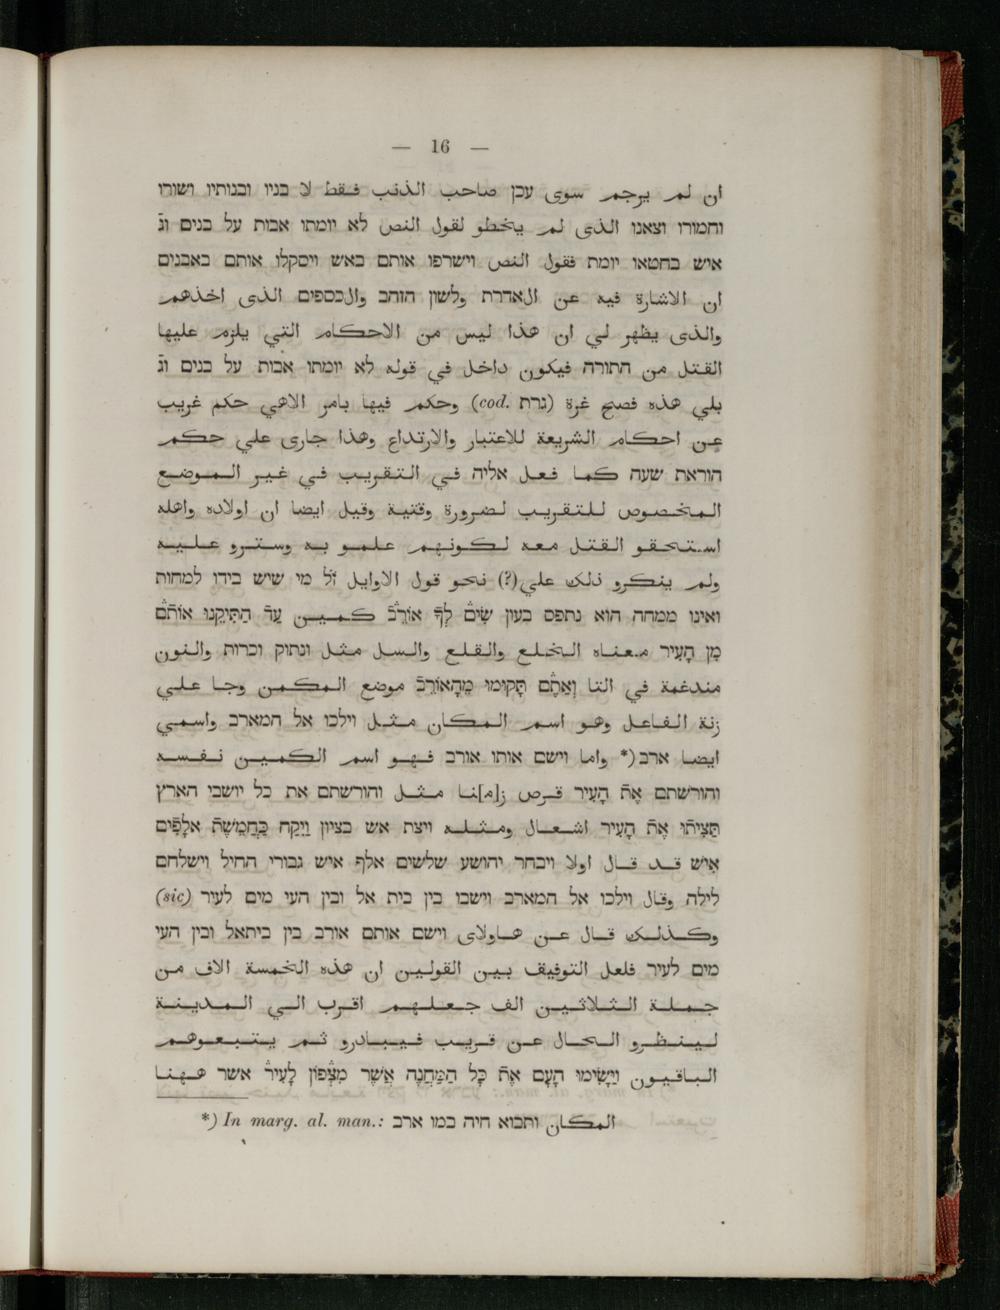 — 16 —
ان لم يرجم سوى עכן صاحب الذنب فقط لا בניו ובנותיו ושורו
וחמורו וצאנו الذى لم يخطو لقول النص לא יומתו אבות על בנים וג̄
איש בחטאו יומת فقول النص וישרפו אותם באש ויסקלו אותם באבנים
ان الاشارة فيه عن الאדרת ולשון הזהב والכספים الذى اخذهم
والذى يظهر لي ان هذا ليس من الاحكام التي يلزم عليها
القتل من התורה فيكون داخل في قوله לא יומתו אבות על בנים וג̄
بلي هذه فصيح غرة (גרת cod.) وحكم فيها بامر الاهي حكم غريب
عن احكام الشريعة للاعتبار والارتداع وهذا جارى علي حكم
הוראת שעה كما فعل אליה في التقريب في غير الموضع
المخصوص للتقريب لضرورة وقتية وقيل ايضا ان اولاده واهله
استحقو القتل معه لكونهم علمو به وسترو عليه
ولم ينكرو ذلك علي(?) نحو قول الاوايل ז̄ל מי שיש בידו למחות
ואינו ממחה הוא נתפס בעון שִׂים לְךָ אוֹרֵב كمين עַד הַתִּיקֵנוּ אוֹתָם
מִן הָעִיר معناه الخلع والقلع والسل مثل ונתוק וכרות والنون
مندغمة في التا וְאַתֶּם תָּקוּמוּ מֵהָאוֹרֵב موضع المكمن وجا علي
زنة الفاعل وهو اسم المكان مثل וילכו אל המארב واسمي
ايضا ארב *) واما וישם אותו אורב فهو اسم الكمين نفسه
והורשתם אֶת הָעִיר قرص ز[م]نا مثل והורשתם את כל יושבי הארץ
תַּצִּיתוּ אֶת הָעִיר اشعال ومثله ויצת אש בציון וַיִּקַּח כַּחֲמֵשֶׁת אֲלָפִים
אִישׁ قد قال اولا ויבחר יהושע שלשים אלף איש גבורי החיל וישלחם
לילה وقال וילכו אל המארב וישבו בין בית אל ובין העי מים לעיר (sic)
وكذلك قال عن هاولاى וישם אותם אורב בין ביתאל ובין העי
מים לעיר فلعل التوفيق بين القولين ان هذه الخمسة الاف من
جملة الثلاثين الف جعلهم اقرب الي المدينة
لينظرو الحال عن قريب فيبادرو ثم يتبعوهم
الباقيون וַיָּשִׂימוּ הָעָם אֶת כָּל הַמַּחֲנֶה אֲשֶׁר מִצְּפוֹן לָעִיר אשר ههنا
*) In marg. al. man.: المكان ותבוא חיה במו ארב